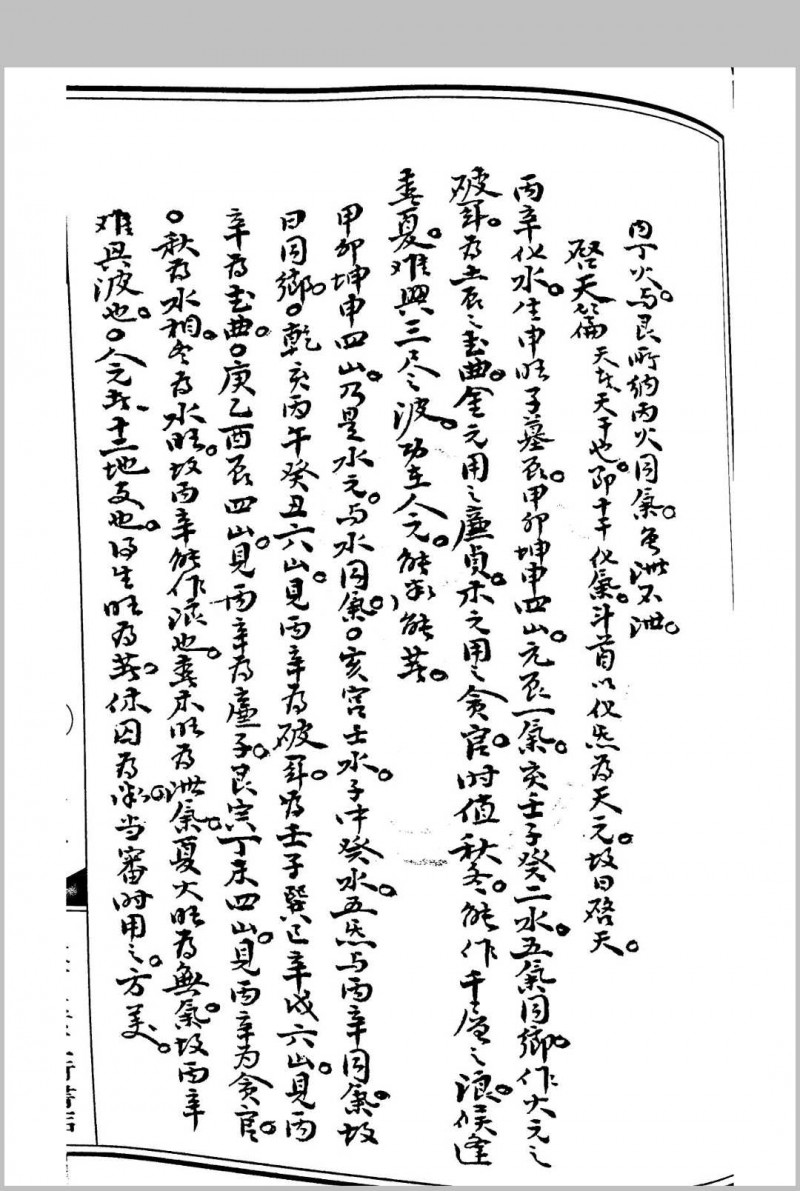 内丁火与艮所纳丙火同氣。为泄不泄。
啓天篇 天者天干也。即十干化氣。斗首以化炁為天元。故曰啓天。
丙辛化水。生申旺子墓辰。甲卯坤申四山。元辰一氣。亥壬子癸二水。五氣同鄉。作大元之
破軍。為土辰之武曲。金元用之廉貞。木元用之贪官。时值秋冬。能作千層之浪。候逢
春夏。难興三尺之波。功在人元。能衰能莊。
甲卯坤申四山。乃是水元。与水同氣。亥宫壬水。子中癸水。五炁与丙辛同氣。故
曰同鄉。乾亥丙午癸丑六山。見丙辛為破軍。為壬子巽巳辛戌六山。見丙
辛為武曲。庚乙酉辰四山。見丙辛為廉子。艮寅丁未四山。見丙辛为贪官。
秋為水相。冬為水旺。故丙辛能作浪也。春木旺為泄氣。夏火旺為無氣。故丙辛
难興波也。人元者十二地支也。得生旺為莊。休囚為衰。当審时用之。方美。